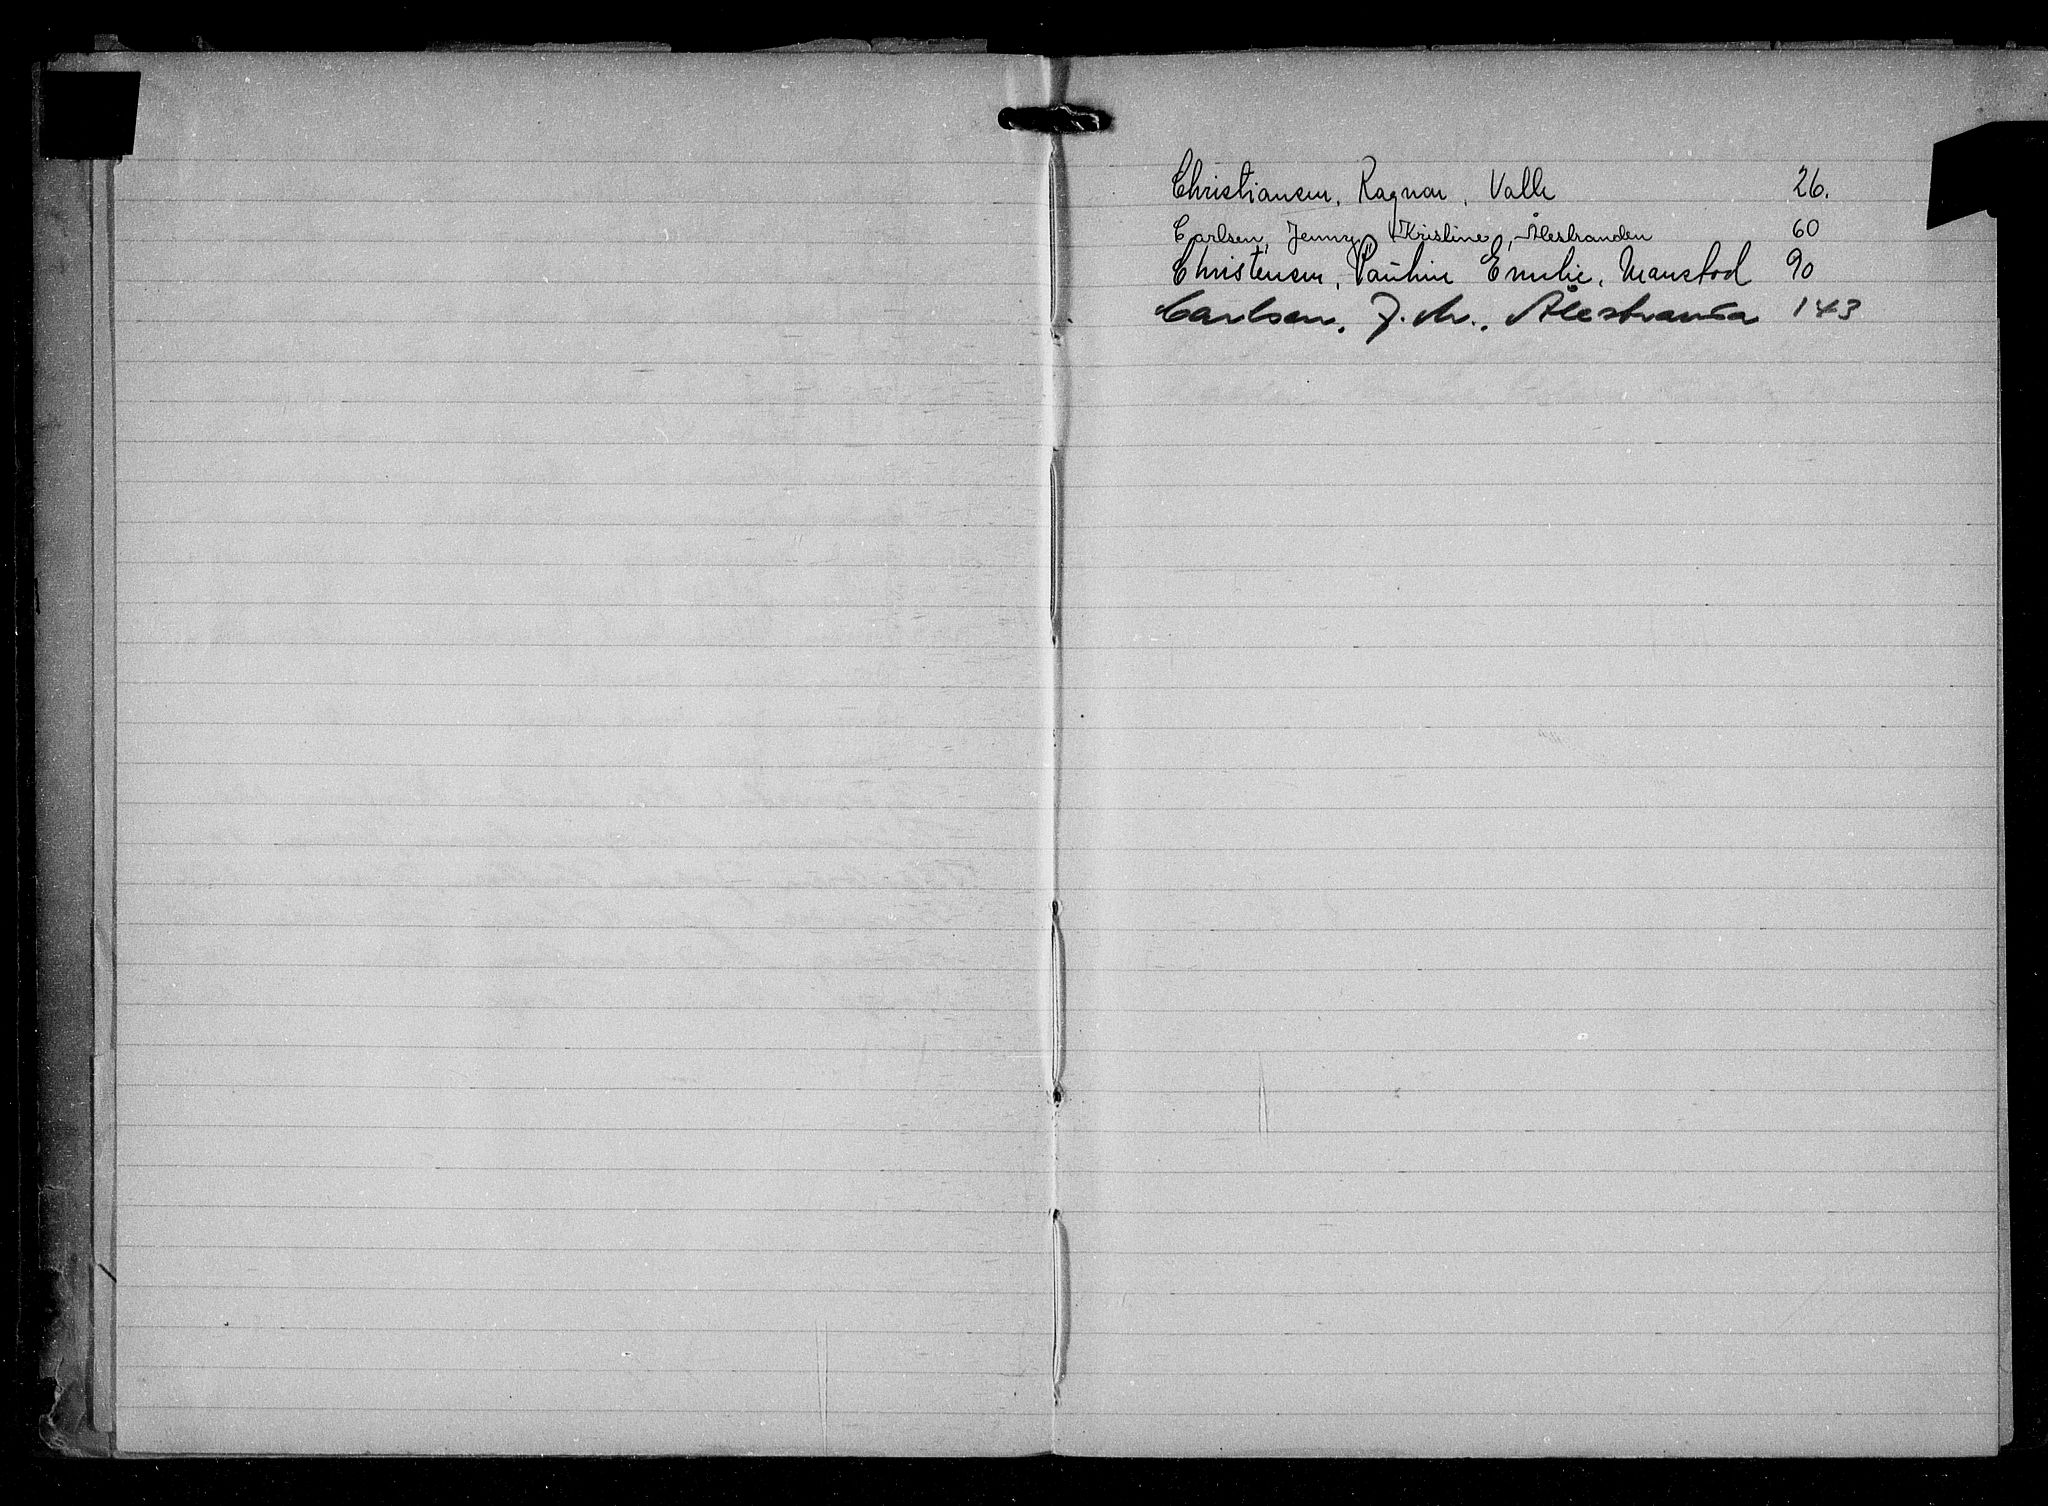 Christiansen, Ragnar, Valle 26.
Carlsen, Jenny Kristine, Ålestranden 60
Christensen, Pauline Emilie, Manstad 90
Carlsen, J. M., Ålestranda 143